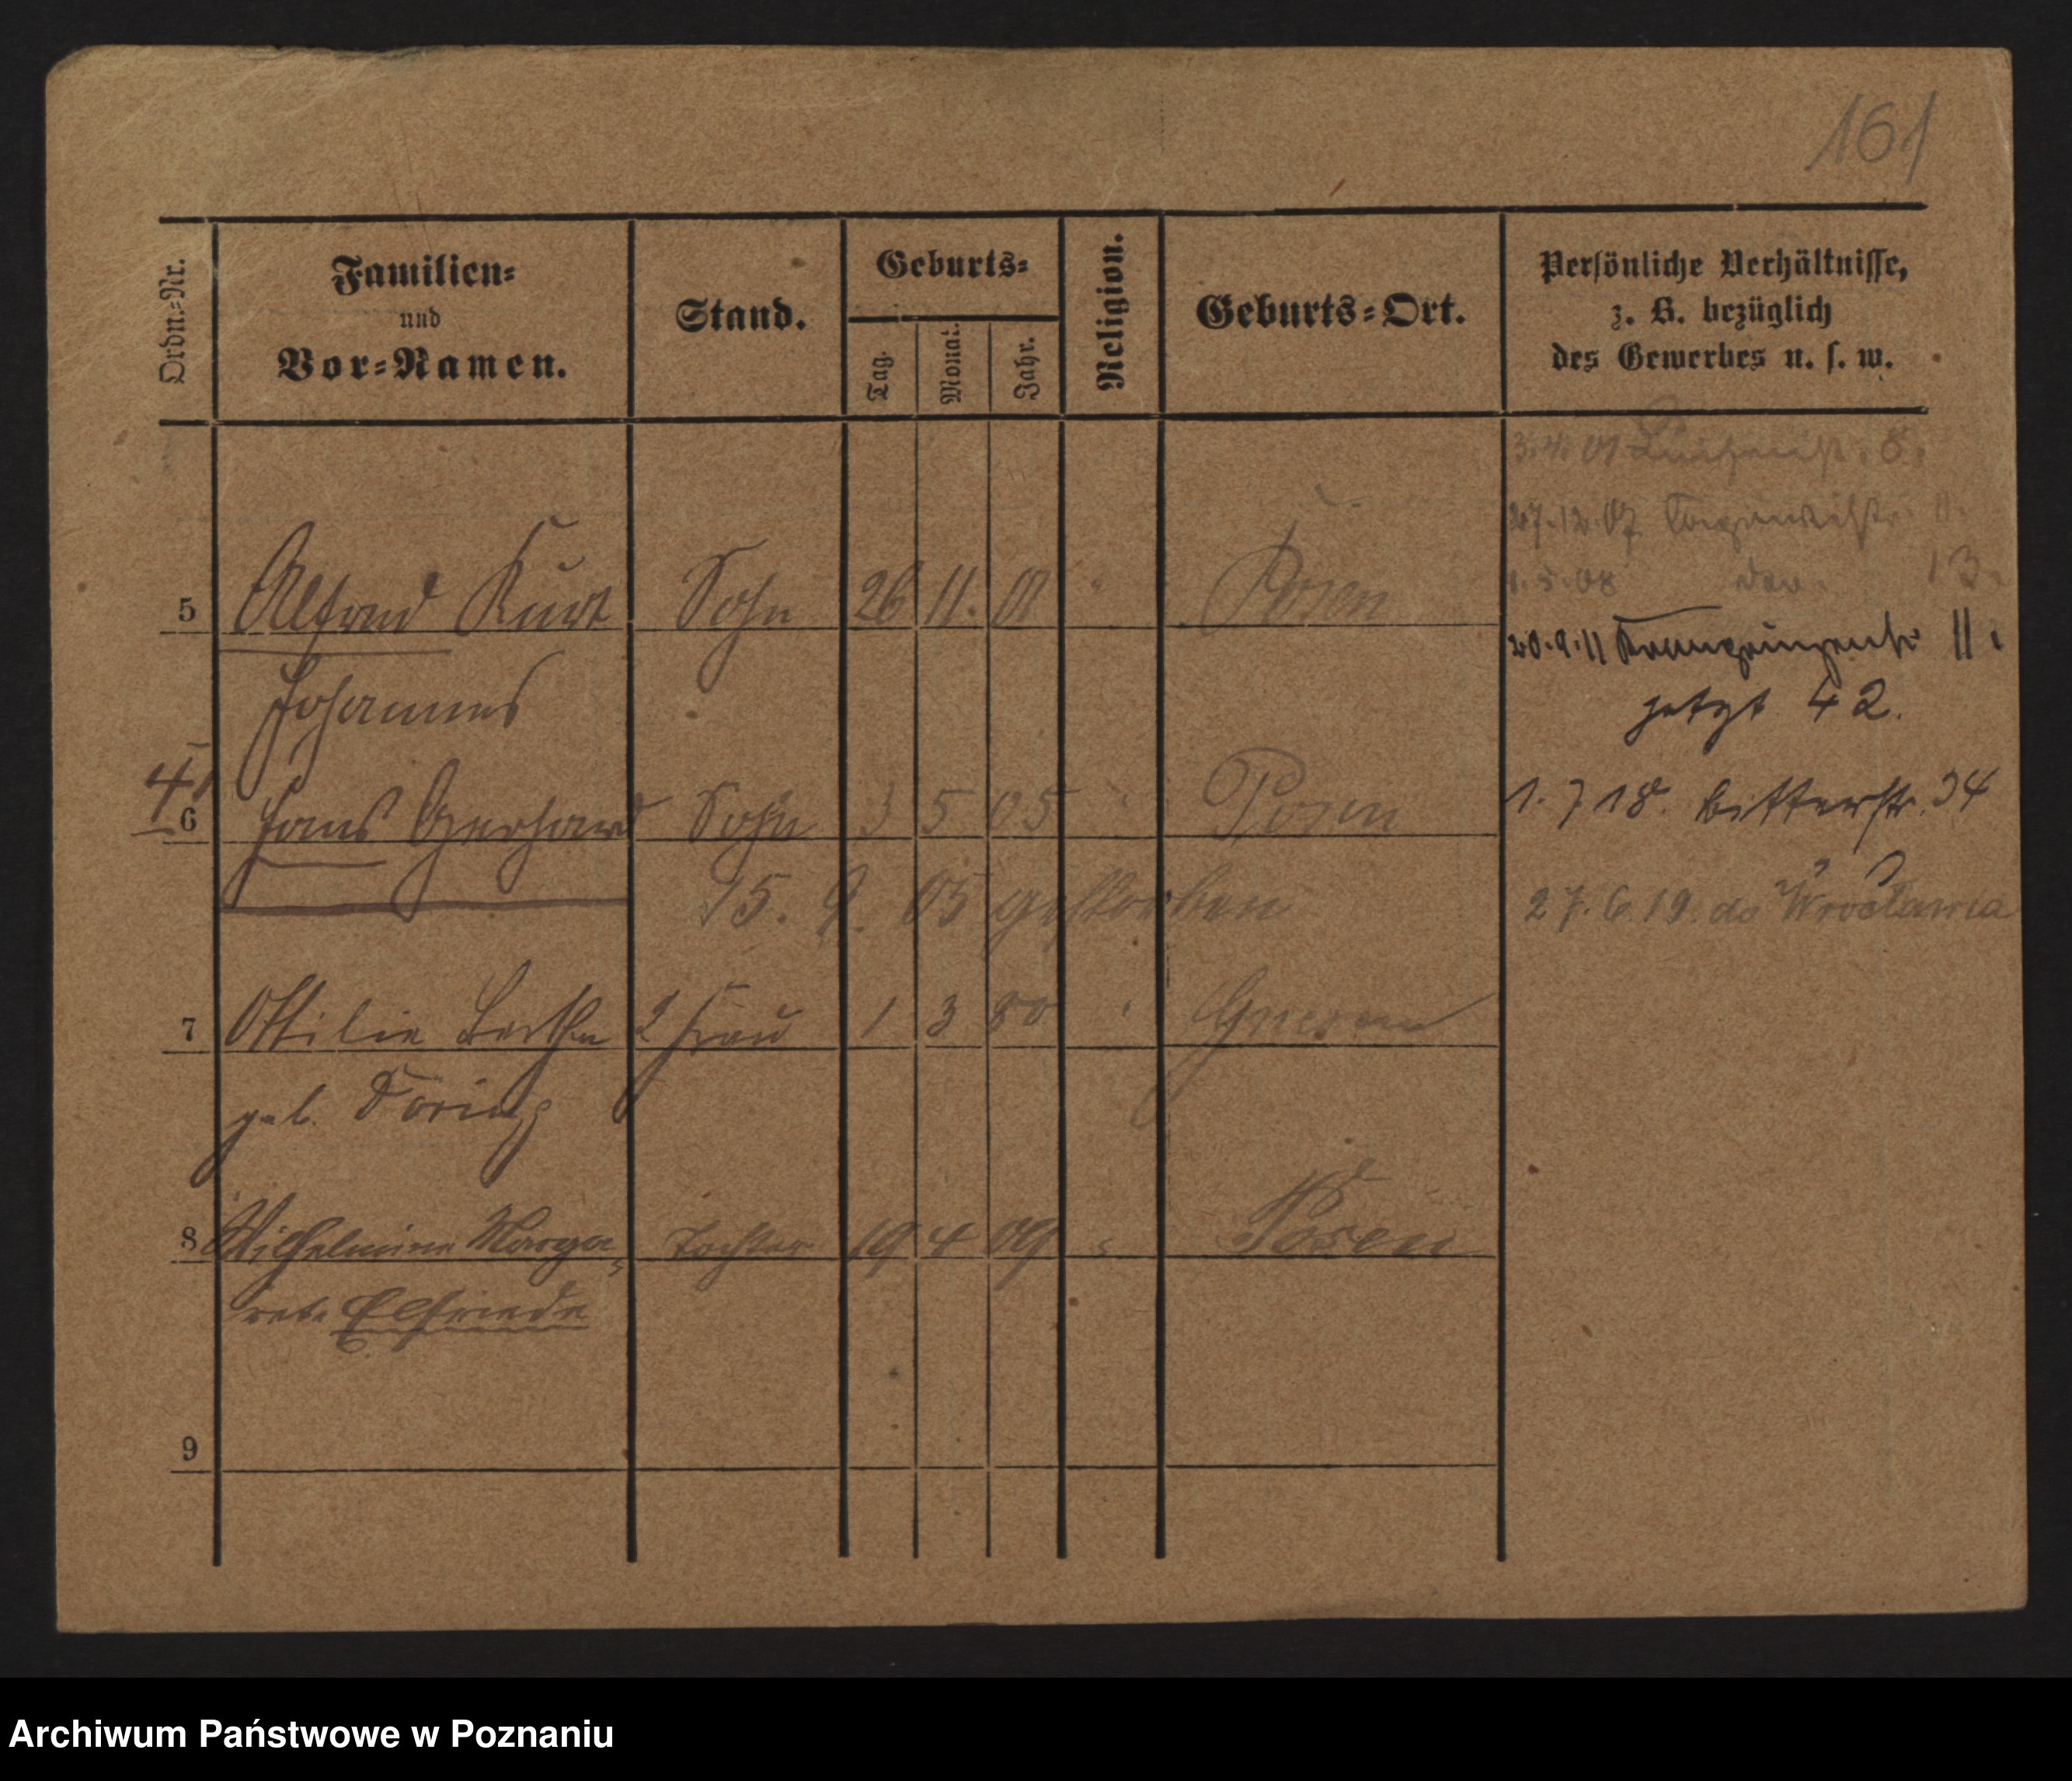 161
Ordn.-Nr.
Familien-
und
Vor-Namen.
Stand.
Geburts-
Tag.
Monat.
Jahr.
Religion.
Geburts-Ort.
Persönliche Verhältnisse,
z. B. bezüglich
des Gewerbes u. s. w.
3.4.01 8.
27.12.07 11.
5 Alfred Kurt Sohn 26 11. 01 " Posen
1.5.08 13.
Johannes
20.9.11 Kronprinzenstr 11.
jetzt 42.
6 Hans Gerhard Sohn 3 5 05 " Posen
1.7 18. Bitterstr. 34
15. 9. 05 gestorben
27.6.19. do Wrocławia
7 Ottilie Bertha 2 Frau 1 3 80 " Gnesen
geb. Döring
8 Wilhelmine Marga- Tochter 19 4 09 " Posen
rete Elfriede
9
Archiwum Państwowe w Poznaniu